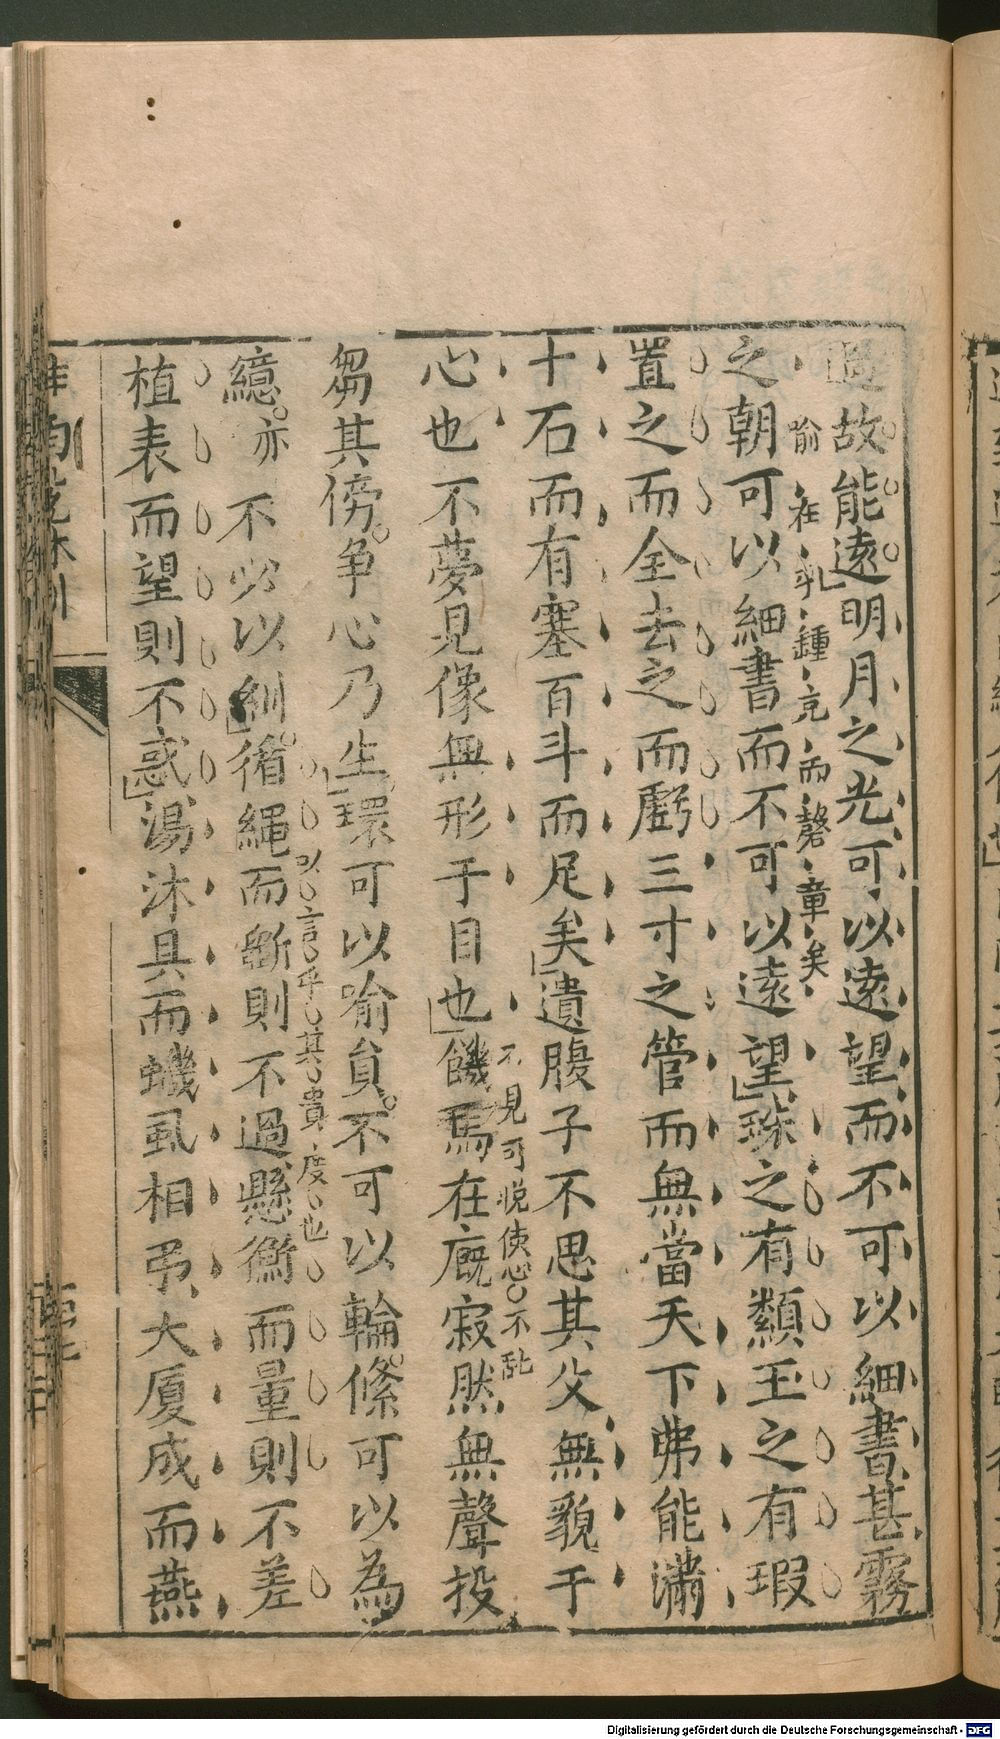 故能遠明月之光可以遠望而不可以細書甚霧
喻在乳鍾亮而磬章矣
之朝可以細書而不可以遠望珠之有纇玉之有瑕
置之而全去之而虧三寸之管而無當天下弗能滿
十石而有塞百斗而足矣遺腹子不思其父無貌于
不見可悅使心不乱
心也不夢見像無形于目也饑馬在廄寂然無聲投
芻其傍爭心乃生環可以喻員不可以輪絛可以為
以言乎其貴度也
繶亦不必以紃循繩而斷則不過懸衡而量則不差
植表而望則不惑湯沐具而蟣虱相弔大厦成而燕
Digitalisierung gefördert durch die Deutsche Forschungsgemeinschaft - DFG